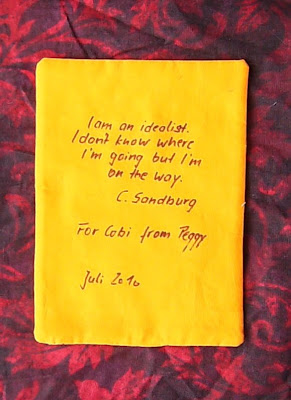 I am an idealist.
I don't know where
I'm going but I'm
on the way.
C. Sandburg
For Cobi from Peggy
Juli 2010